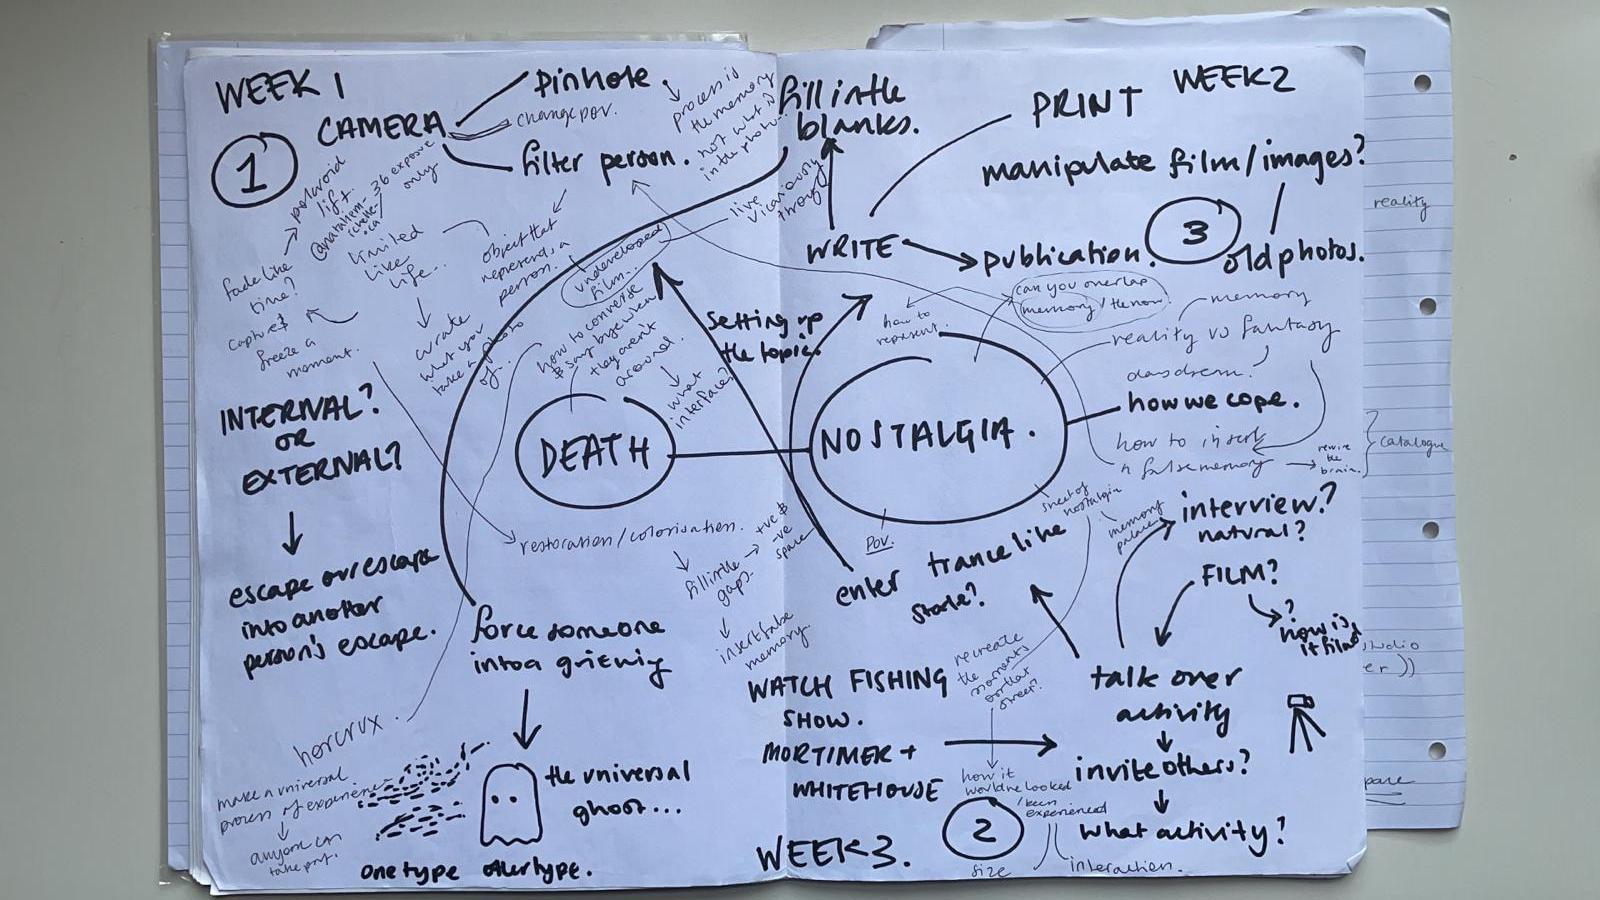 WEEK 1
CAMERA
pinhole
change pov.
filter person.
1
process is
the memory
not what is
in the photo...
live
vicariously
through
polaroid
lift.
36 exposure
only
limited
like
life...
object that
represents a
person.
undeveloped
film...
fade like
time?
capture &
freeze a
moment.
curate
what you
take a photo
of.
how to converse
& say bye when
they aren't
around.
what
interface?
INTERNAL?
OR
EXTERNAL?
escape or escape
into another
person's escape.
DEATH
restoration/colorisation.
fill in the
gaps
+ve &
-ve
space
insert false
memory.
force someone
into a grieving
horcrux.
make a universal
process of experience
anyone can
take part.
the universal
ghost...
one type
other type.
fill in the
blanks.
WRITE
PRINT
WEEK 2
manipulate film/images?
3
old photos.
publication.
can you overlap
memory / the now.
how to
represent.
setting up
the topic.
memory
reality vs fantasy
daydream.
how we cope.
how to insert
a false memory
rewire
the
brain.
NOSTALGIA.
POV.
street of
nostalgia
memory
palace
interview?
natural?
FILM?
?
how is
it filmed
enter trance like
state?
recreate
the
moments
on that
street?
talk over
activity
invite others?
what activity?
WATCH FISHING
SHOW.
MORTIMER +
WHITEHOUSE
how it
would've looked
/been
experienced
2
size
interaction.
WEEK 3.
reality
catalogue
studio
er))